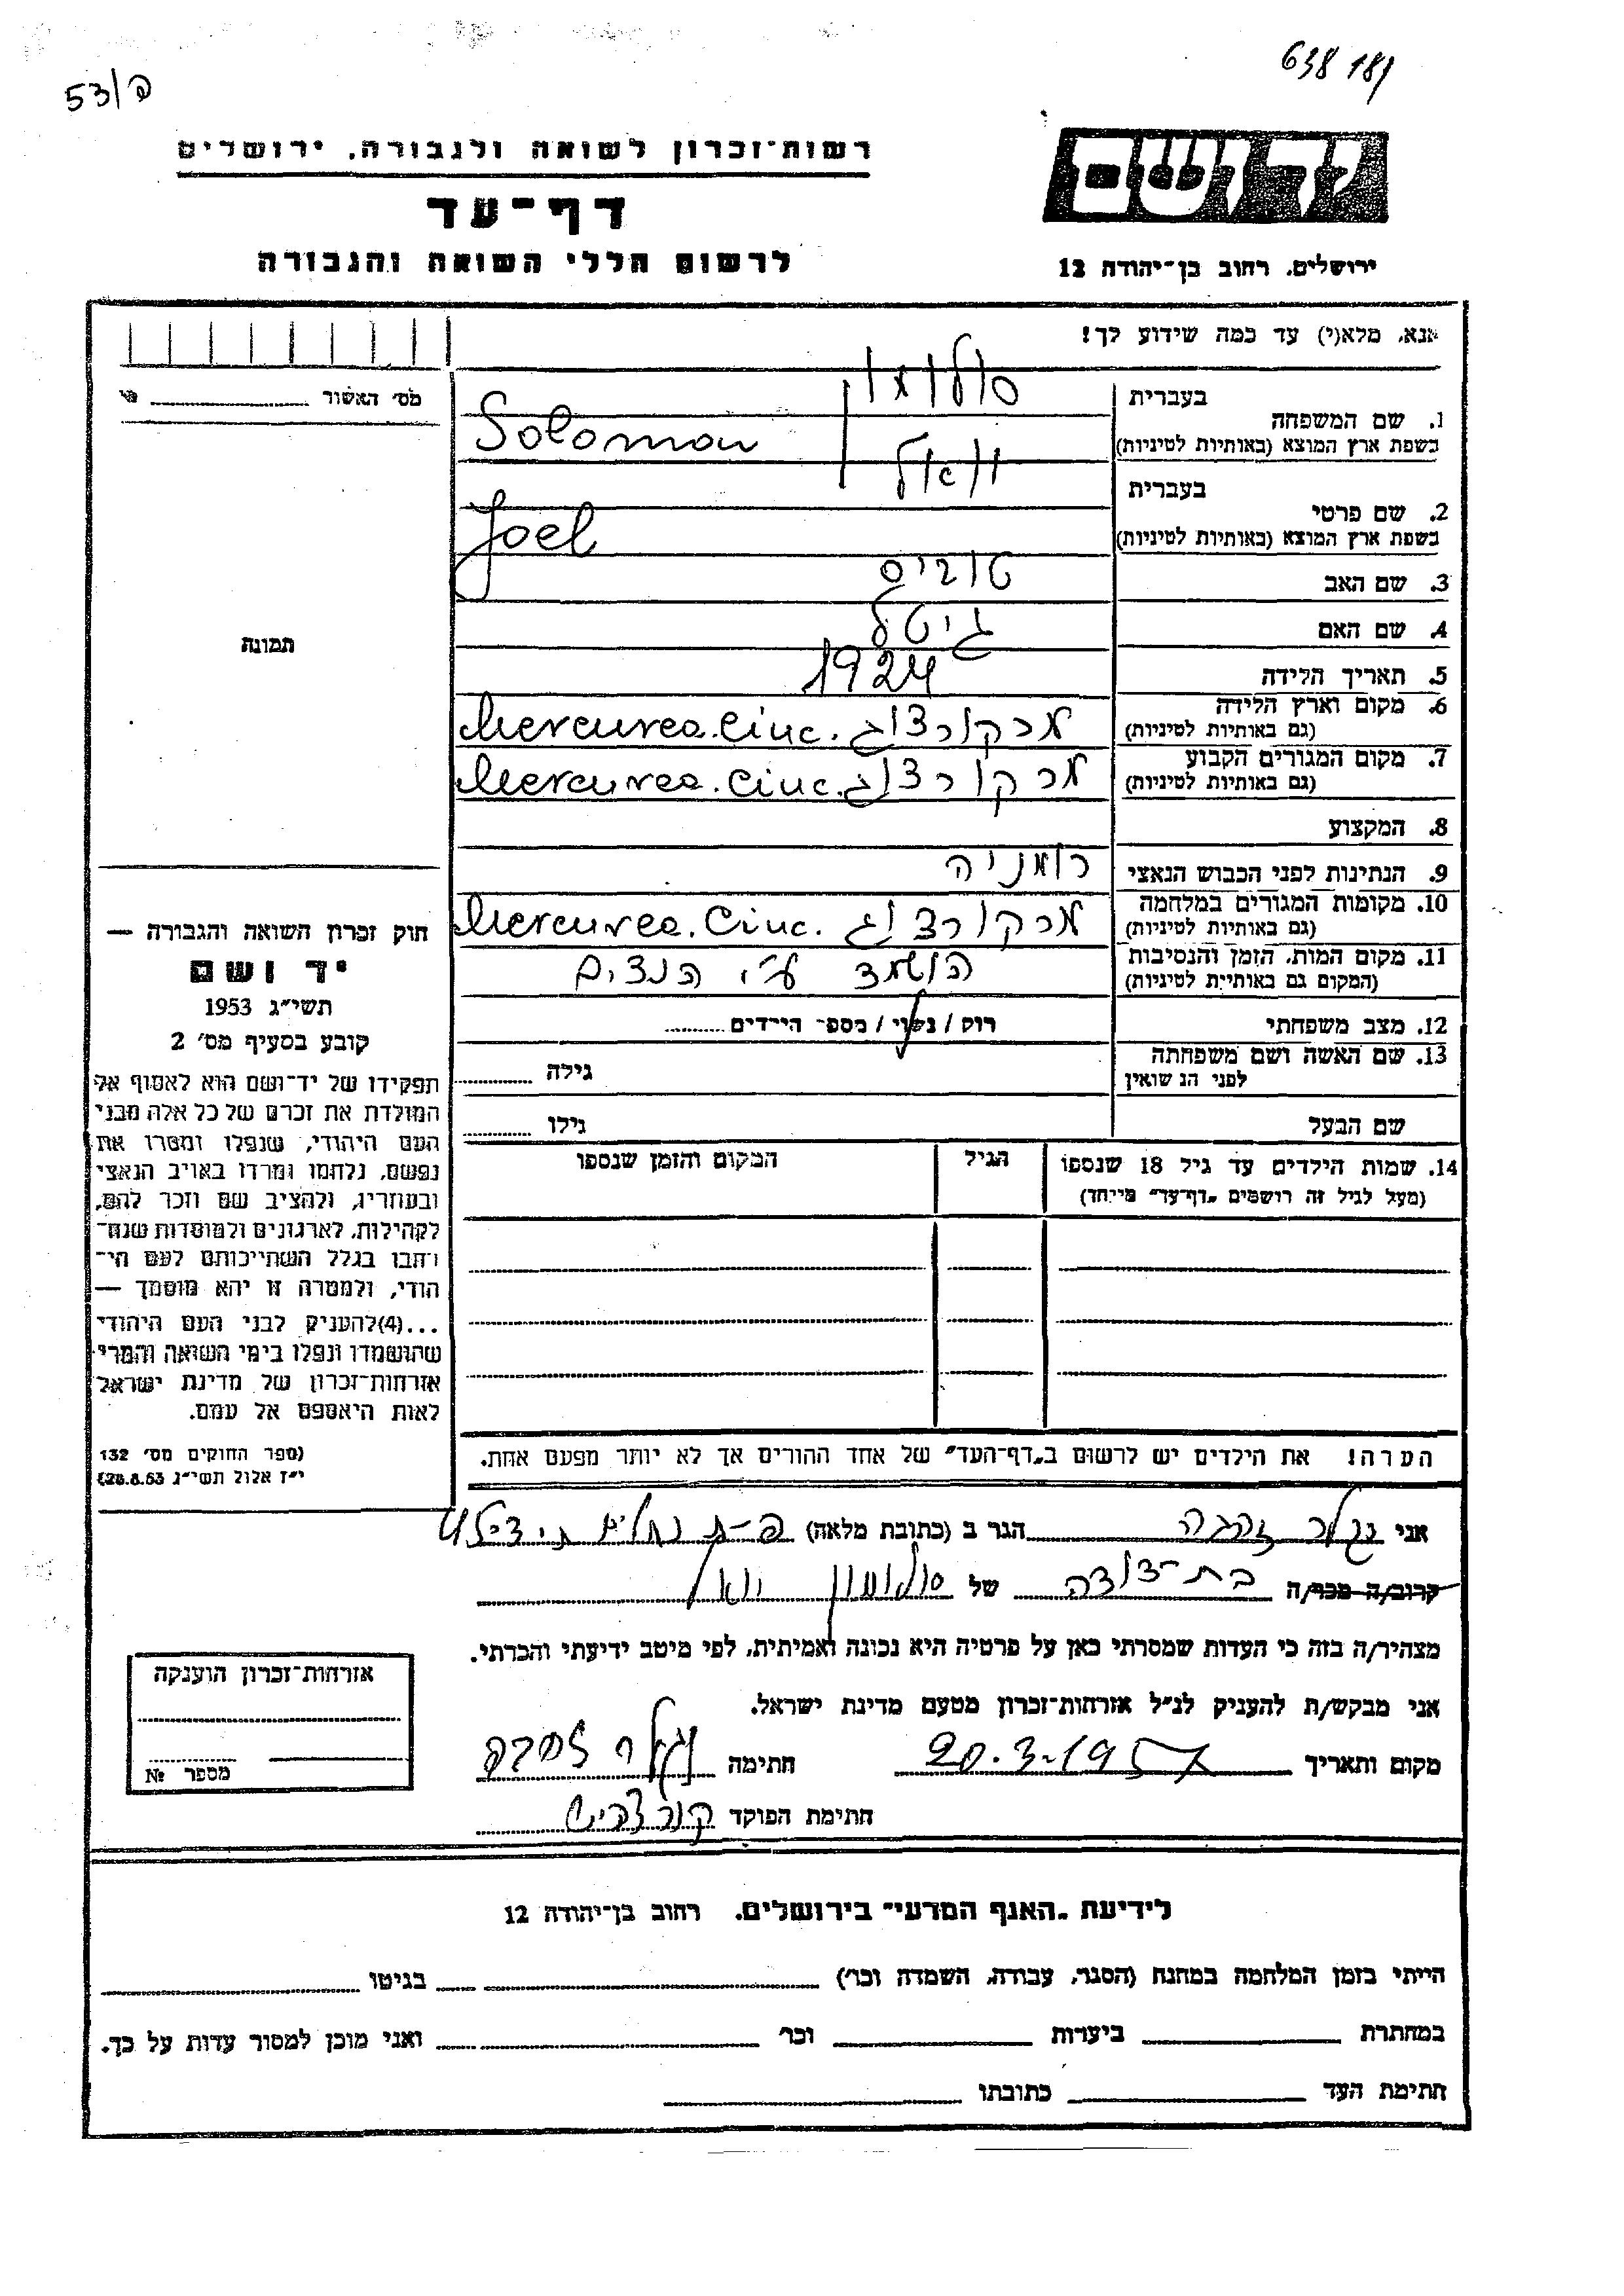 638 181
53/פ
יד ושם
רשות־זכרון לשואה ולגבורה, ירושלים
דף־עד
לרשום חללי השואה והגבורה
ירושלים, רחוב בן־יהודה 12
אנא, מלא(י) עד כמה שידוע לך!
מס׳ האשור
בעברית סולומון
1. שם המשפחה
בשפת ארץ המוצא (באותיות לטיניות) Solomon
בעברית יואל
2. שם פרטי
בשפת ארץ המוצא (באותיות לטיניות) Joel
3. שם האב טוביס
4. שם האם גיטל
5. תאריך הלידה 1924
6. מקום וארץ הלידה
(גם באותיות לטיניות) מרקורצוג Mercurea.Ciuc.
7. מקום המגורים הקבוע
(גם באותיות לטיניות) מרקורצוג Mercurea.Ciuc.
8. המקצוע
9. הנתינות לפני הכבוש הנאצי רומניה
10. מקומות המגורים במלחמה
(גם באותיות לטיניות) מרקורצוג Mercurea.Ciuc.
11. מקום המות, הזמן והנסיבות הושמד ע״י הנצים
(המקום גם באותיות לטיניות)
12. מצב משפחתי רוק / נשוי / מספר הילדים
13. שם האשה ושם משפחתה
לפני הנשואין גילה
שם הבעל גילו
14. שמות הילדים עד גיל 18 שנספו הגיל המקום והזמן שנספו
(מעל לגיל זה רושמים „דף־עד״ מייחד)
הערה! את הילדים יש לרשום ב„דף־העד״ של אחד ההורים אך לא יותר מפעם אחת.
תמונה
חוק זכרון השואה והגבורה —
יד ושם
תשי״ג 1953
קובע בסעיף מס׳ 2
תפקידו של יד־ושם הוא לאסוף אל
המולדת את זכרם של כל אלה מבני
העם היהודי, שנפלו ומסרו את
נפשם, נלחמו ומרדו באויב הנאצי
ובעוזריו, ולהציב שם וזכר להם,
לקהילות, לארגונים ולמוסדות שנח־
רבו בגלל השתייכותם לעם הי־
הודי, ולמטרה זו יהא מוסמך —
...(4)להעניק לבני העם היהודי
שהושמדו ונפלו בימי השואה והמרי
אזרחות־זכרון של מדינת ישראל
לאות היאספם אל עמם.
(ספר החוקים מס׳ 132
י״ז אלול תשי״ג 28.8.53)
אני זהבה הגר ב (כתובת מלאה)
קרוב/ה מכר/ה בת-דודה של סולומון יואל
מצהיר/ה בזה כי העדות שמסרתי כאן על פרטיה היא נכונה ואמיתית, לפי מיטב ידיעתי והכרתי.
אני מבקש/ת להעניק לנ״ל אזרחות־זכרון מטעם מדינת ישראל.
מקום ותאריך 20.3.195 חתימה זהבה
חתימת הפוקד
אזרחות־זכרון הוענקה
מספר №
לידיעת „האגף המדעי״ בירושלים, רחוב בן־יהודה 12
הייתי בזמן המלחמה במחנה (הסגר, עבודה, השמדה וכר׳) בגיטו
במחתרת ביערות וכר׳ ואני מוכן למסור עדות על כך.
חתימת העד כתובתו